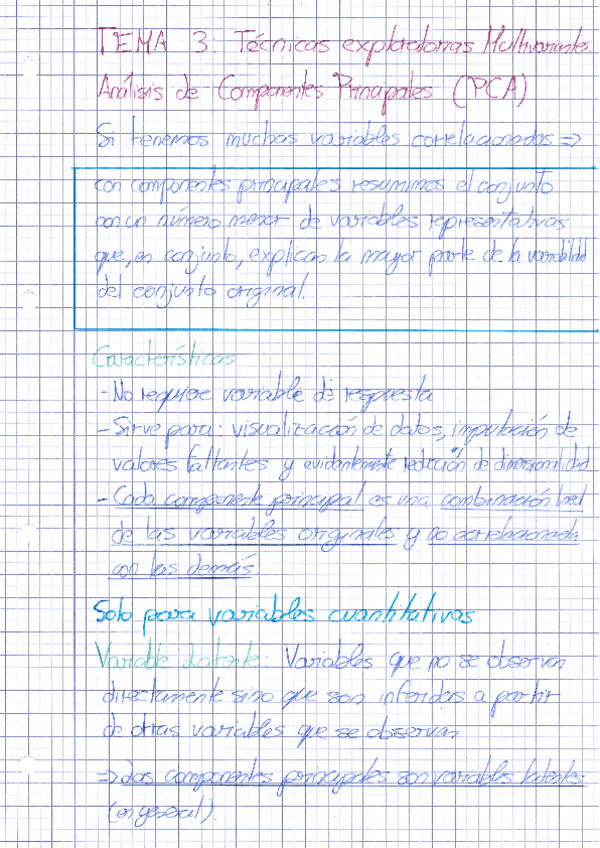 TEMA 3: Técnicas exploratorias Multivariantes.
Análisis de Componentes Principales (PCA)
Si tenemos muchas variables correlacionadas =>
con componentes principales resumimos el conjunto
con un número menor de variables representativas
que, en conjunto, explican la mayor parte de la variabilidad
del conjunto original.
Características
- No requiere variable de respuesta
- Sirve para: visualización de datos, imputación de
valores faltantes y evidentemente reducción de dimensionalidad
- Cada componente principal es una combinación lineal
de las variables originales y no correlacionada
con las demás.
Solo para variables cuantitativas
Variable latente: Variables que no se observan
directamente sino que son inferidas a partir
de otras variables que se observan
=> Las componentes principales son variables latentes
(en general).